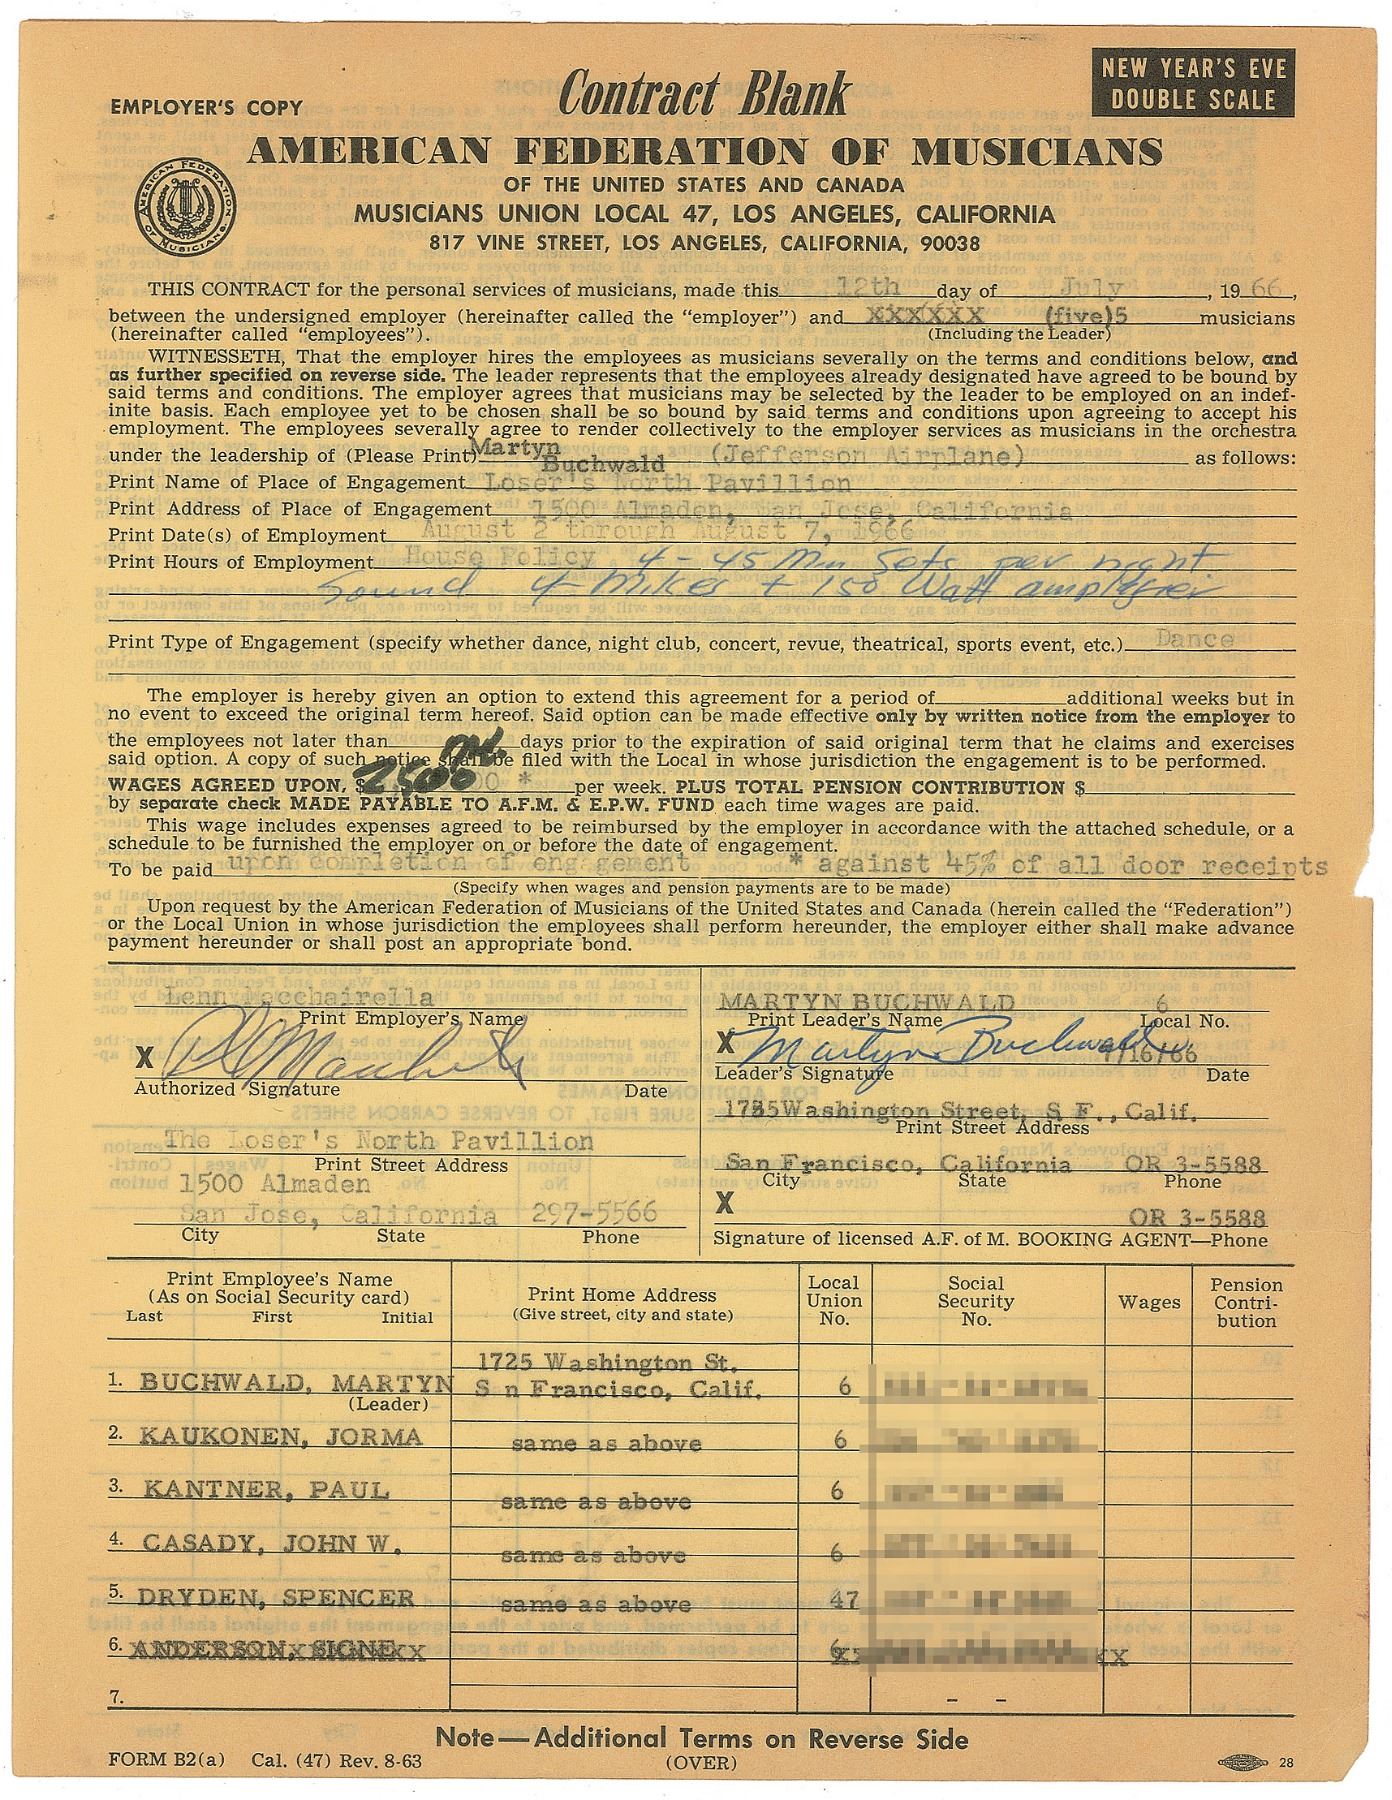 EMPLOYER'S COPY
Contract Blank
NEW YEAR'S EVE
DOUBLE SCALE
AMERICAN FEDERATION OF MUSICIANS
OF THE UNITED STATES AND CANADA
MUSICIANS UNION LOCAL 47, LOS ANGELES, CALIFORNIA
817 VINE STREET, LOS ANGELES, CALIFORNIA, 90038
AMERICAN FEDERATION OF MUSICIANS
THIS CONTRACT for the personal services of musicians, made this 12th day of July, 19 66,
between the undersigned employer (hereinafter called the "employer") and XXXXXX (five)5 musicians
(hereinafter called "employees"). (Including the Leader)
WITNESSETH, That the employer hires the employees as musicians severally on the terms and conditions below, and
as further specified on reverse side. The leader represents that the employees already designated have agreed to be bound by
said terms and conditions. The employer agrees that musicians may be selected by the leader to be employed on an indef-
inite basis. Each employee yet to be chosen shall be so bound by said terms and conditions upon agreeing to accept his
employment. The employees severally agree to render collectively to the employer services as musicians in the orchestra
under the leadership of (Please Print) Martyn Buchwald (Jefferson Airplane) as follows:
Print Name of Place of Engagement Loser's North Pavillion
Print Address of Place of Engagement 1500 Almaden, San Jose, California
Print Date(s) of Employment August 2 through August 7, 1966
Print Hours of Employment House Policy 4 - 45 Min Sets per night
Sound 4 Mikes + 150 Watt amplifier
Print Type of Engagement (specify whether dance, night club, concert, revue, theatrical, sports event, etc.) Dance
The employer is hereby given an option to extend this agreement for a period of additional weeks but in
no event to exceed the original term hereof. Said option can be made effective only by written notice from the employer to
the employees not later than days prior to the expiration of said original term that he claims and exercises
said option. A copy of such notice shall be filed with the Local in whose jurisdiction the engagement is to be performed.
WAGES AGREED UPON, $ 2500 00 * per week. PLUS TOTAL PENSION CONTRIBUTION $
by separate check MADE PAYABLE TO A.F.M. & E.P.W. FUND each time wages are paid.
This wage includes expenses agreed to be reimbursed by the employer in accordance with the attached schedule, or a
schedule to be furnished the employer on or before the date of engagement.
To be paid upon completion of eng gement * against 45% of all door receipts
(Specify when wages and pension payments are to be made)
Upon request by the American Federation of Musicians of the United States and Canada (herein called the "Federation")
or the Local Union in whose jurisdiction the employees shall perform hereunder, the employer either shall make advance
payment hereunder or shall post an appropriate bond.
Print Employer's Name
X
Authorized Signature Date
The Loser's North Pavillion
Print Street Address
1500 Almaden
San Jose, California 297-5566
City State Phone
MARTYN BUCHWALD 6
Print Leader's Name Local No.
X Martyn Buchwald 7/16/66
Leader's Signature Date
1725 Washington Street, S F., Calif.
Print Street Address
San Francisco, California OR 3-5588
City State Phone
X OR 3-5588
Signature of licensed A.F. of M. BOOKING AGENT—Phone
Print Employee's Name
(As on Social Security card)
Last First Initial
Print Home Address
(Give street, city and state)
Local
Union
No.
Social
Security
No.
Wages
Pension
Contri-
bution
1725 Washington St.
1. BUCHWALD, MARTYN S n Francisco, Calif. 6
(Leader)
2. KAUKONEN, JORMA same as above 6
3. KANTNER, PAUL same as above 6
4. CASADY, JOHN W. same as above 6
5. DRYDEN, SPENCER same as above 47
6. ANDERSON, SIGNE 6
7. - -
Note—Additional Terms on Reverse Side
FORM B2(a) Cal. (47) Rev. 8-63 (OVER) 28